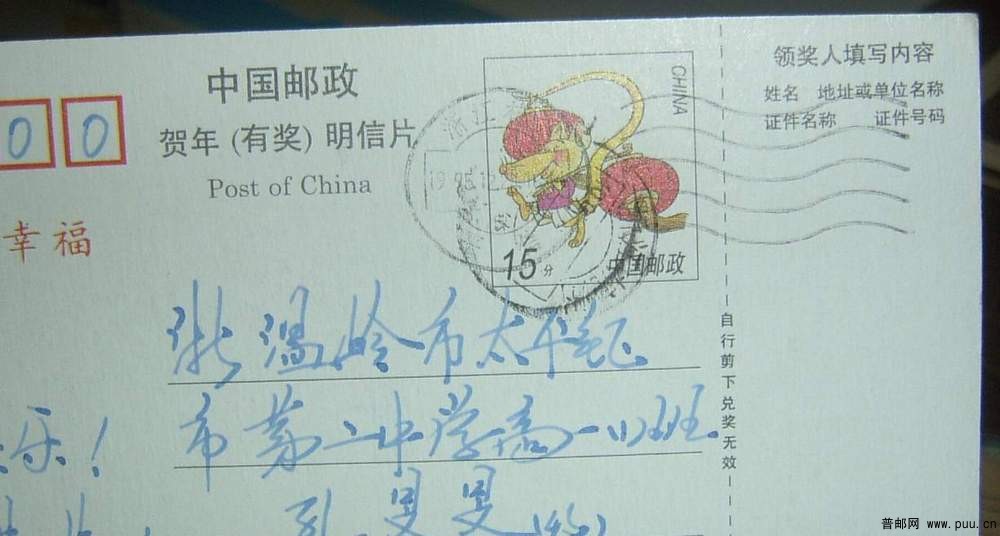 00
中国邮政
贺年(有奖)明信片
Post of China
CHINA
15分
中国邮政
领奖人填写内容
姓名 地址或单位名称
证件名称 证件号码
自行剪下兑奖无效
幸福
浙江
浙温岭市太平镇
市第二中学高一(1)班
乐!
旻旻
普邮网 www.puu.cn